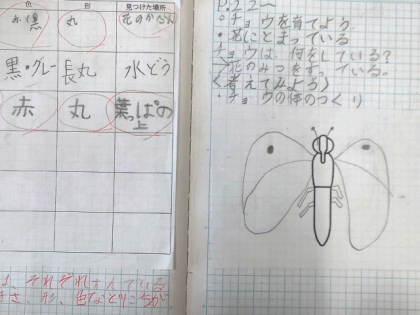 色 形 見つけた場所
赤、黒 丸 花のかだん
黒・グレー 長丸 水どう
赤 丸 葉っぱの上
は、それぞれすんでいる
きさ、形、色などにちが
P.22〜
・チョウを育てよう。
・花にとまっている
チョウは、何をしている?
→花のみつをすっている。
〈考えてみよう〉
・チョウの体のつくり